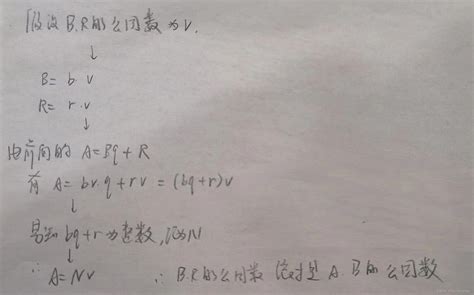 假设 B.R的公因数为V.
↓
B= b·v
R= r·v
↓
由前面的 A=Bq+R
有 A= bv·q+rv = (bq+r)v
↓
易知 bq+r 为整数,记为N
↓
∴ A=Nv ∴ B.R的公因数 A.B的公因数